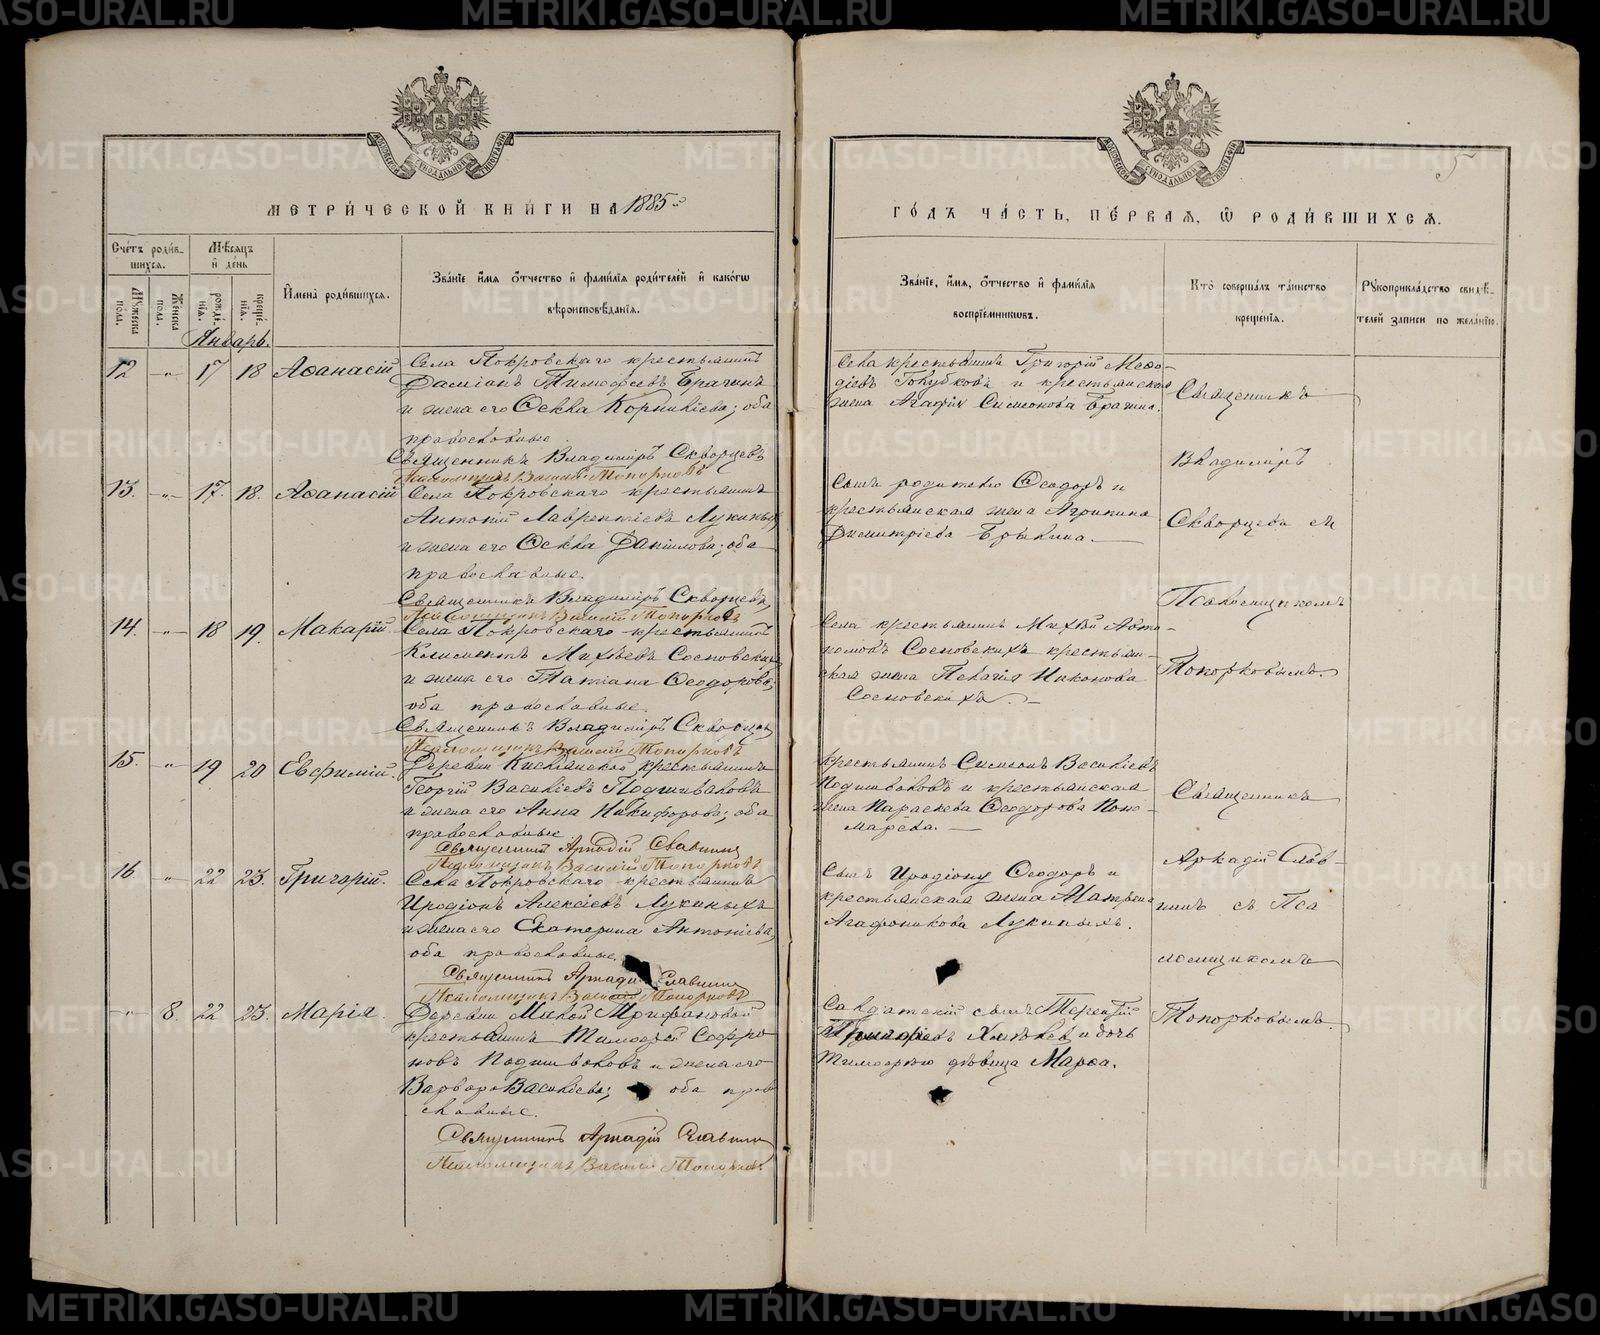 МЕТРИ́ЧЕСКОЙ КНИ́ГИ НА 1885й
ГО́ДЪ ЧА́СТЬ, ПЕ́РВАЯ, Ѡ РОДИ́ВШИХСЯ.
5
Сче́тъ роди́в-
шихся.
Мꙋ́жеска пола.
Же́нска пола.
Мѣ́сяцъ
и де́нь
рожде́нїя.
креще́нїя.
Имена̀ роди́вшихся.
Зва́нїе и́мя ѻ́тчество и фами́лїя роди́телей и како́гѡ
вѣроисповѣ́данїя.
Зва́нїе, и́мя, ѻ́тчество и фами́лїя
воспрїе́мникѡвъ.
Кто̀ соверша́лъ та́инство
креще́нїя.
Рꙋкоприкла́дство свидѣ́-
телей за́писи по жела́нїю.
Январь.
12 -"- 17 18 Аѳанасій
Села Покровскаго крестьянинъ
Даміанъ Тимоѳеевъ Брагинъ
и жена его Ѳекла Корнилієва; оба
православные.
Священникъ Владиміръ Скворцевъ
Псаломщикъ Василій Топорковъ
Села крестьянинъ Григорій Меѳо-
діевъ Голубковъ и крестьянская
жена Агафія Симеонова Брагина.
13. -"- 17. 18. Аѳанасій
Села Покровскаго крестьянинъ
Антоній Лаврентіевъ Лукиныхъ
и жена его Ѳекла Данилова; оба
православные.
Священникъ Владиміръ Скворцевъ
Псаломщикъ Василій Топорковъ
Сынъ родителю Ѳеодоръ и
крестьянская жена Агрипина
Димитріева Брылина.
14. -"- 18 19. Макарій.
Села Покровскаго крестьянинъ
Климентъ Михѣевъ Сосновскихъ
и жена его Татіана Ѳеодорова;
оба православные.
Священникъ Владиміръ Скворцевъ
Псаломщикъ Василій Топорковъ
Села крестьянинъ Михѣй Авто-
номовъ Сосновскихъ крестьян-
ская жена Пелагія Никонова
Сосновскихъ.
15. " 19 20 Евфимій.
Деревни крестьянинъ
Георгій Василіевъ Подшиваловъ
и жена его Анна Никифорова; оба
православные.
Священникъ Аркадій Славнинъ
Псаломщикъ Василій Топорковъ
крестьянинъ Симеонъ Василіевъ
Подшиваловъ и крестьянская
жена Параскева Ѳеодорова Поно-
марева.
16. " 22 23. Григорій.
Села Покровскаго крестьянинъ
Иродіонъ Алексіевъ Лукиныхъ
и жена его Екатерина Антоніева,
оба православные.
Священникъ Аркадій Славнинъ
Псаломщикъ Василій Топорковъ
Сынъ Иродіону Ѳеодоръ и
крестьянская жена Матрена
Агафоникова Лукиныхъ.
-"- 8. 22 23. Марія.
Деревни Малой Трифановой
крестьянинъ Тимоѳей Софро-
новъ Подшиваловъ и жена его
Варвара Василіева; оба право-
славные.
Священникъ Аркадій Славнинъ
Псаломщикъ Василій Топорковъ
Салдатскій сынъ Терентій
Григорьевъ и дочь
Тимоѳею дѣвица Марѳа.
Священникъ
Владиміръ
Скворцевъ съ
Псаломщикомъ
Топорковымъ.
Священникъ
Аркадій Слав-
нинъ съ Пса
ломщикомъ
Топорковымъ.